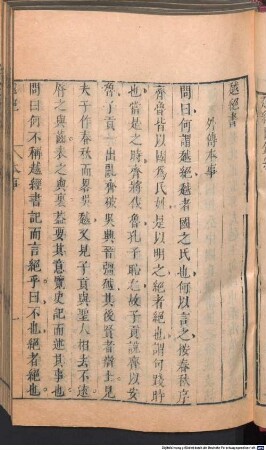 越絕書
外傳本事
問曰何謂越絕越者國之氏也何以言之按春秋序
齊魯皆以國爲氏姓是以明之絕者絕也謂句踐時
也當是之時齊將伐魯孔子恥之故子貢說齊以安
魯子貢一出亂齊破吳興晉彊越其後賢者辯士見
夫子作春秋而畧吳越又見子貢與聖人相去不遠
脣之與齒表之與裏蓋要其意覽史記而述其事也
問曰何不稱越經書記而言絕乎曰不也絕者絕也